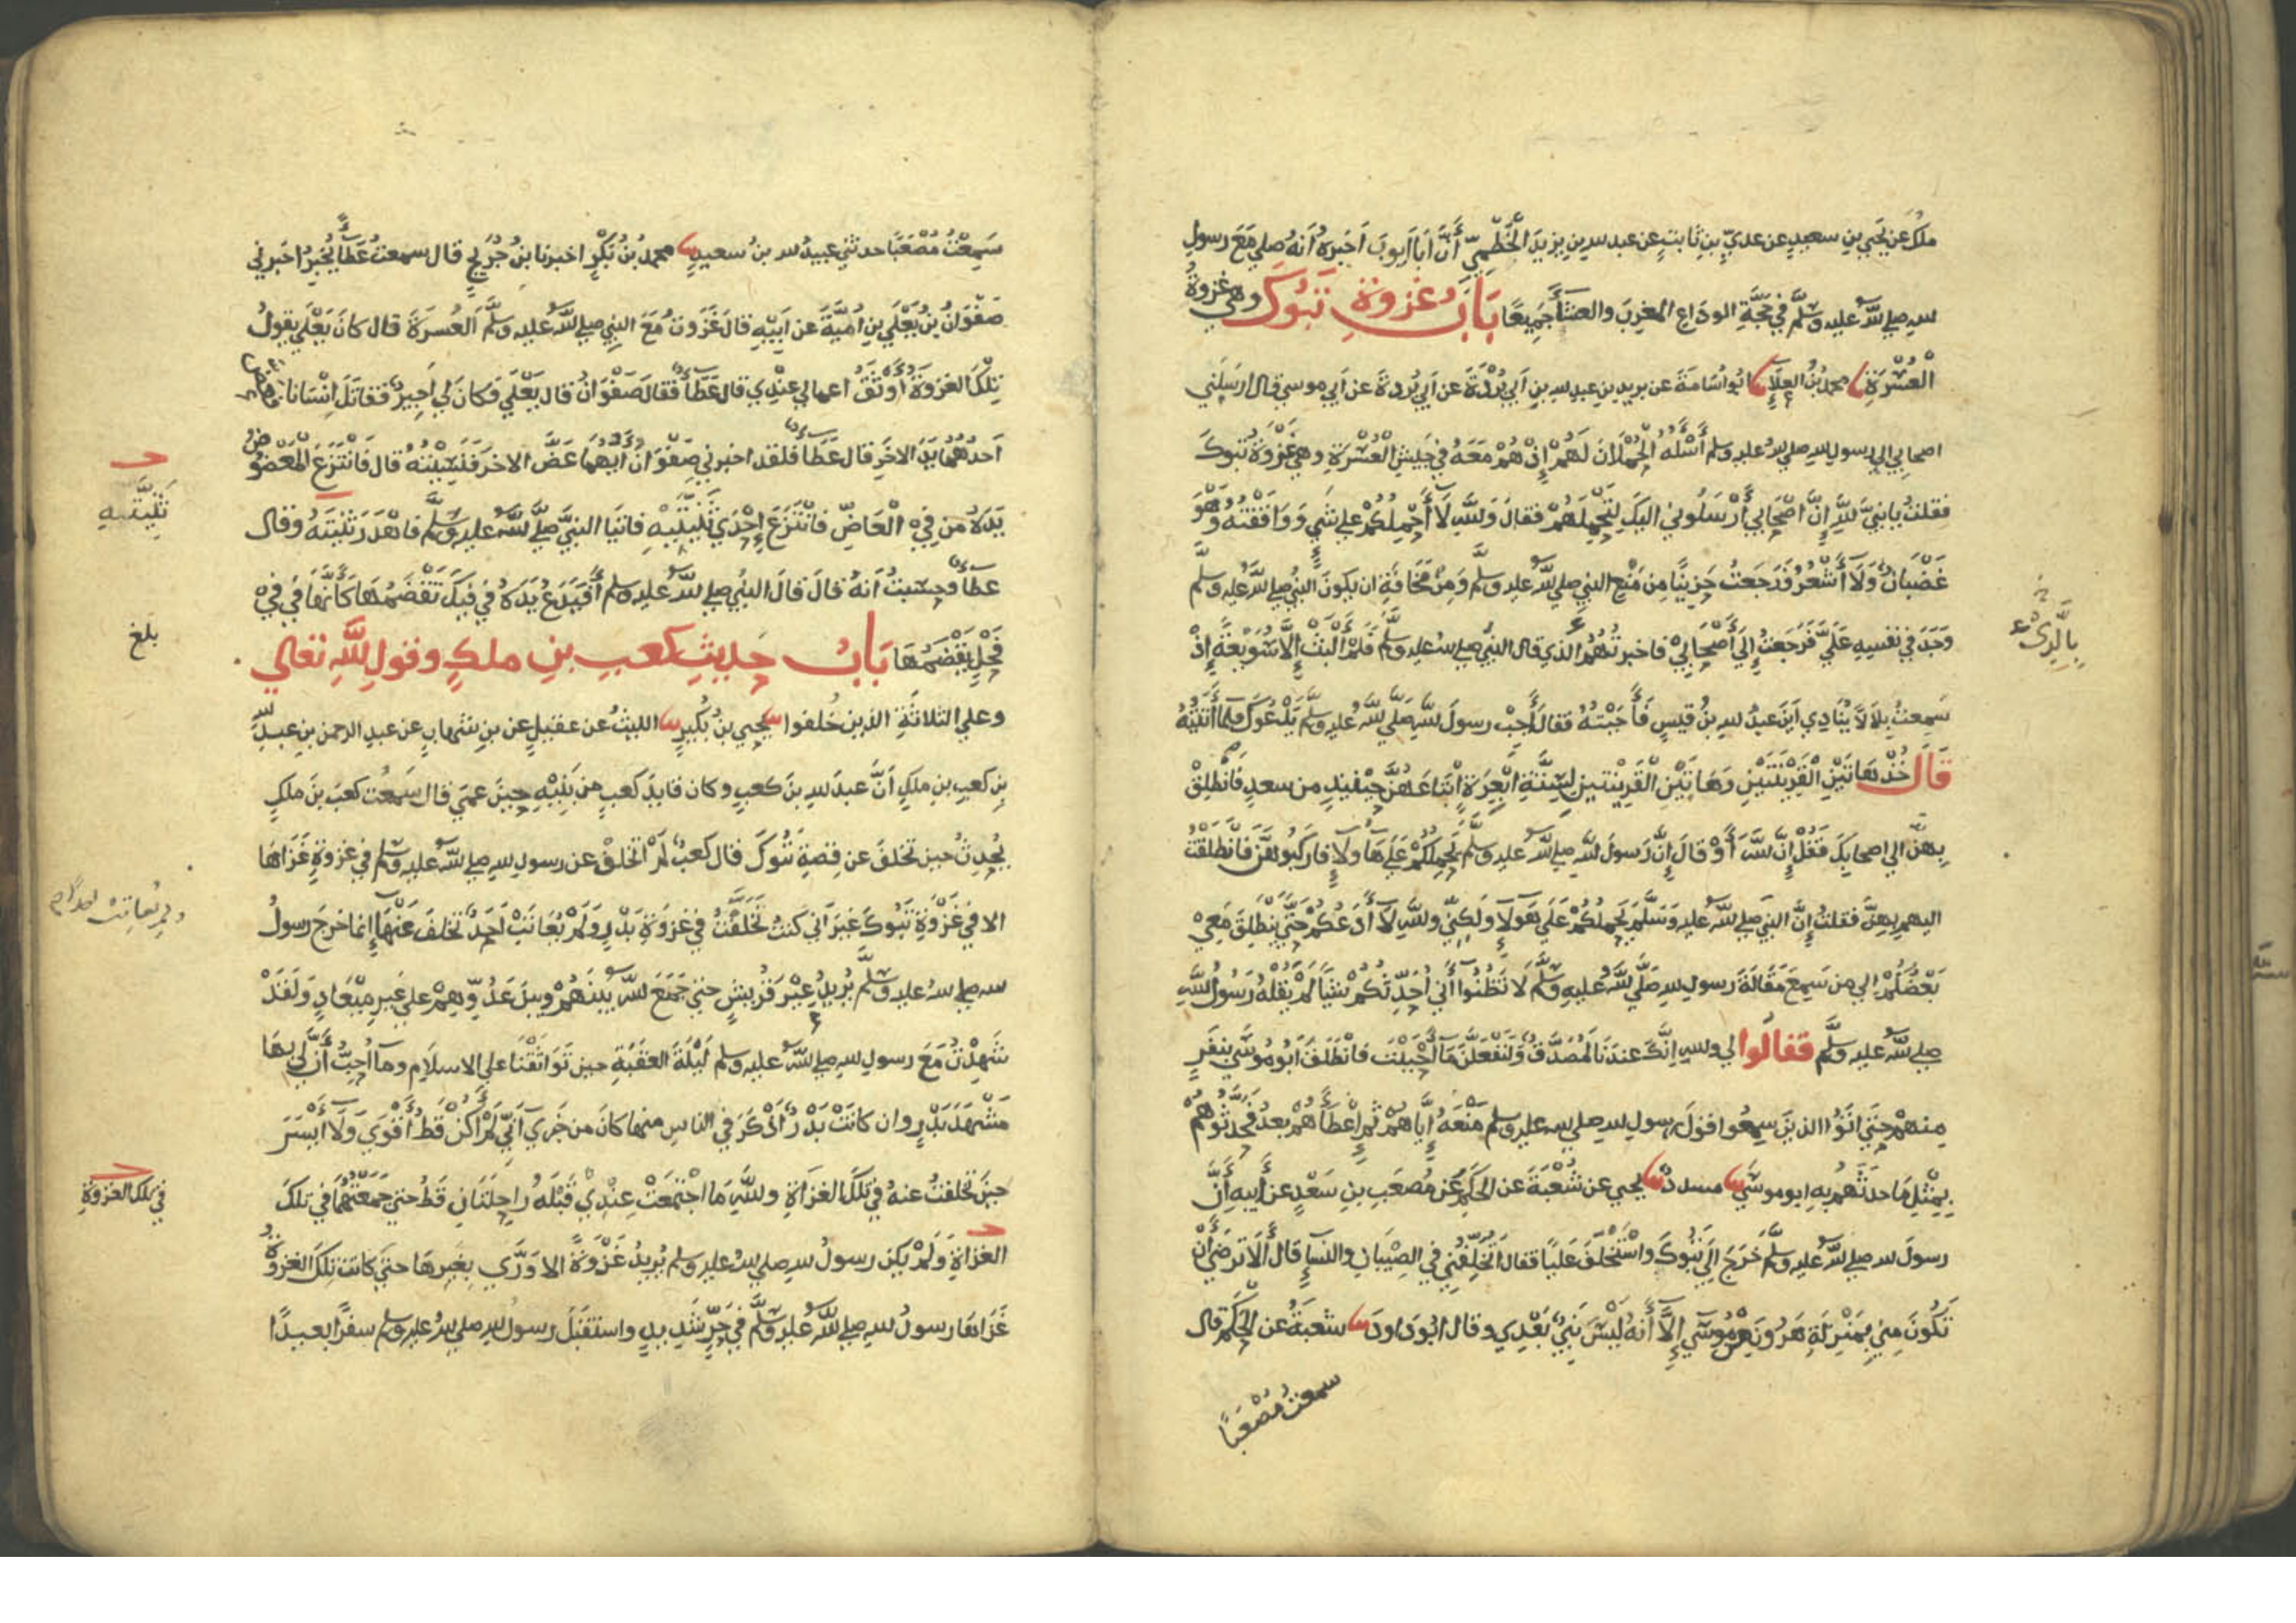 ملك عن يحيى بن سعيد عن عدي بن ثابت عن عبد الله بن يزيد الخطمي أن أبا أيوب أخبره أنه صلى مع رسول
الله صلى الله عليه وسلم في حجة الوداع المغرب والعشا جميعا باب غزوة تبوك وهي غزوة
العسرة محمد بن العلاء ابو اسامة عن بريد بن عبد الله بن أبي بردة عن أبي بردة عن أبي موسى قال ارسلني
اصحابي الى رسول الله صلى الله عليه وسلم أسأله الحملان لهم إذ هم معه في جيش العسرة وهي غزوة تبوك
فقلت يا نبي الله إن أصحابي أرسلوني اليك لتحملهم فقال والله لا أحملكم على شي ووافقته وهو
غضبان ولا أشعر فرجعت حزينا من منع النبي صلى الله عليه وسلم ومن مخافة ان يكون النبي صلى الله عليه وسلم
وجد في نفسه علي فرجعت إلى أصحابي فاخبرتهم الذي قال النبي صلى الله عليه وسلم فلم ألبث إلا سويعة إذ
بالذي
سمعت بلالا ينادي أين عبد الله بن قيس فأجبته فقال أجب رسول الله صلى الله عليه وسلم يدعوك فلما أتيته
قال خذ هاتين القرينتين وهاتين القرينتين لستة أبعرة ابتاعهن حينئذ من سعد فانطلق
بهن الى اصحابك فقل إن الله أو قال إن رسول الله صلى الله عليه وسلم يحملكم على هاولا فاركبوهن فانطلقت
اليهم بهن فقلت إن النبي صلى الله عليه وسلم يحملكم على هولا ولكني والله لا أدعكم حتى ينطلق معي
بعضكم الى من سمع مقالة رسول الله صلى الله عليه وسلم لا تظنوا أني أحدثكم شيأ لم يقله رسول الله
صلى الله عليه وسلم فقالوا لي والله إنك عندنا لمصدق ولنفعلن ما أحببت فانطلق أبو موسى بنفر
منهم حتى اتوا الذين سمعوا قول رسول الله صلى الله عليه وسلم منعه إياهم ثم إعطاءهم بعد فحدثوهم
بمثل ما حدثهم به ابو موسى مسدد يحيى عن شعبة عن الحكم عن مصعب بن سعد عن أبيه أن
رسول الله صلى الله عليه وسلم خرج الى تبوك واستخلف عليا فقال أتخلفني في الصبيان والنساء قال ألا ترضى أن
تكون مني بمنزلة هرون من موسى إلا أنه ليس نبي بعدي وقال ابو داود شعبة عن الحكم قال
سمعت مصعبا
سمعت مصعبا حدثني عبيد الله بن سعيد محمد بن بكر اخبرنا ابن جريج قال سمعت عطاء يخبر اخبرني
صفوان بن يعلى بن أمية عن أبيه قال غزوت مع النبي صلى الله عليه وسلم العسرة قال كان يعلى يقول
تلك الغزوة أوثق اعمالي عندي قال عطاء فقال صفوان قال يعلى فكان لي أجير فقاتل إنسانا فعض
أحدهما يد الاخر قال عطاء فلقد اخبرني صفوان أيهما عض الاخر فنسيته قال فانتزع المعضوض
يده من في العاض فانتزع إحدى ثنيتيه فاتيا النبي صلى الله عليه وسلم فاهدر ثنيته وقال
ثنيتيه
عطاء وحسبت أنه قال قال النبي صلى الله عليه وسلم أفيدع يده في فيك تقضمها كأنها في في
فحل يقضمها باب حديث كعب بن ملك وقول الله تعالى
بلغ
وعلى الثلاثة الذين خلفوا يحيى بن بكير الليث عن عقيل عن بن شهاب عن عبد الرحمن بن عبد الله
بن كعب بن ملك أن عبد الله بن كعب وكان قايد كعب من بنيه حين عمي قال سمعت كعب بن ملك
يحدث حين تخلف عن قصة تبوك قال كعب لم اتخلف عن رسول الله صلى الله عليه وسلم في غزوة غزاها
الا في غزوة تبوك غير أني كنت تخلفت في غزوة بدر ولم يعاتب أحد تخلف عنها إنما خرج رسول
ولم يعاتب
الله صلى الله عليه وسلم يريد عير قريش حتى جمع الله بينهم وبين عدوهم على غير ميعاد ولقد
شهدت مع رسول الله صلى الله عليه وسلم ليلة العقبة حين تواثقنا على الاسلام وما أحب أن لي بها
مشهد بدر وان كانت بدر أذكر في الناس منها كان من خبري أني لم أكن قط أقوى ولا أيسر
حين تخلفت عنه في تلك الغزاة والله ما اجتمعت عندي قبله راحلتان قط حتى جمعتهما في تلك
في تلك الغزوة
الغزاة ولم يكن رسول الله صلى الله عليه وسلم يريد غزوة الا ورى بغيرها حتى كانت تلك الغزوة
غزاها رسول الله صلى الله عليه وسلم في حر شديد واستقبل رسول الله صلى الله عليه وسلم سفرا بعيدا